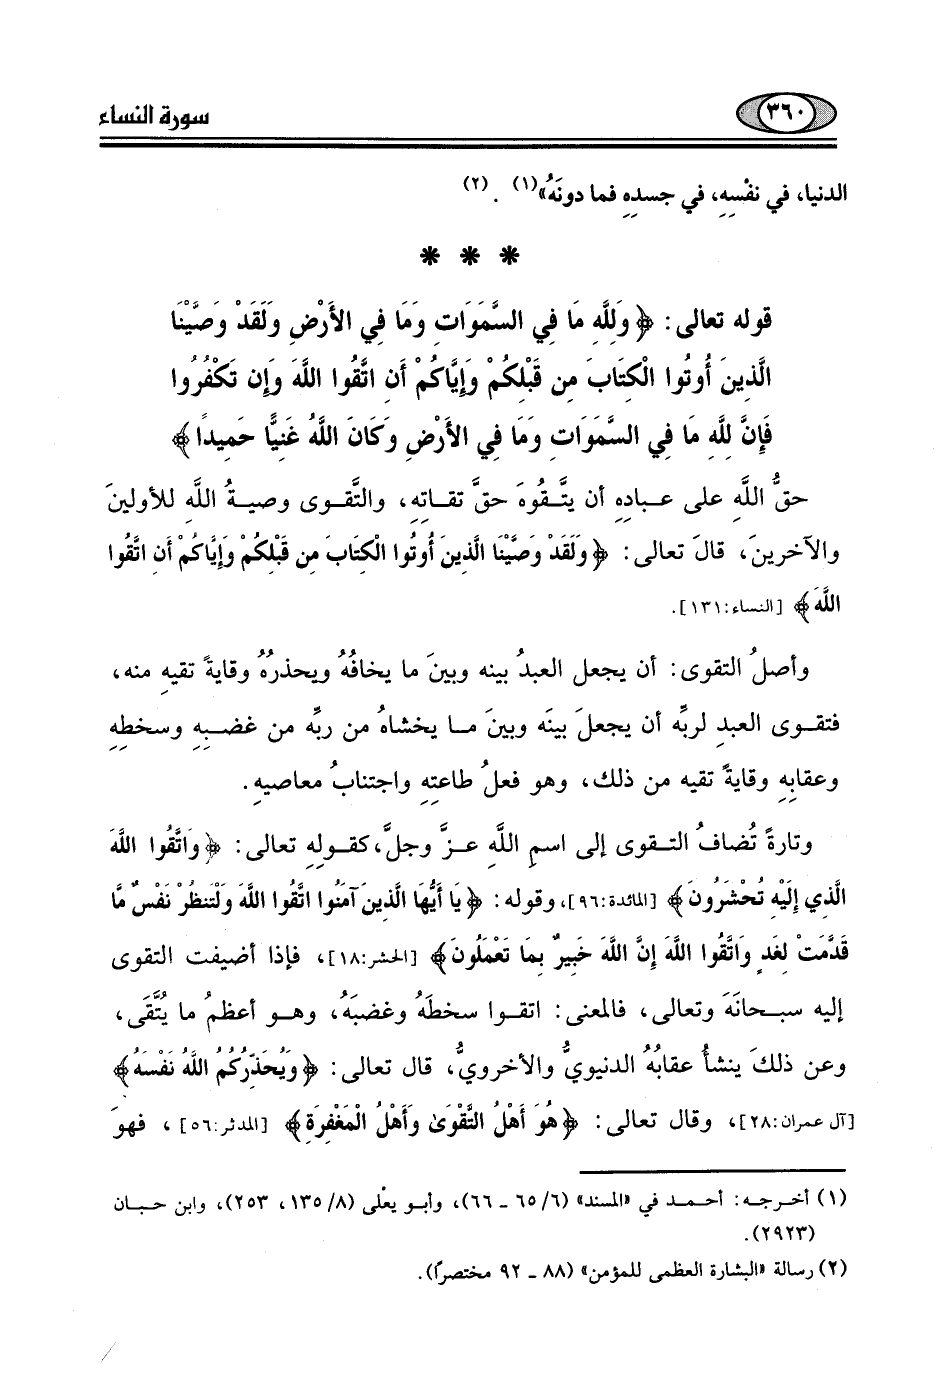 ٣٦٠ سورة النساء
الدنيا، في نفْسِهِ، في جسدِهِ فما دونَهُ»(١) . (٢)
* * *
قوله تعالى: ﴿وَلِلَّهِ مَا فِي السَّمَوَاتِ وَمَا فِي الأَرْضِ وَلَقَدْ وَصَّيْنَا
الَّذِينَ أُوتُوا الْكِتَابَ مِن قَبْلِكُمْ وَإِيَّاكُمْ أَنِ اتَّقُوا اللَّهَ وَإِن تَكْفُرُوا
فَإِنَّ لِلَّهِ مَا فِي السَّمَوَاتِ وَمَا فِي الأَرْضِ وَكَانَ اللَّهُ غَنِيًّا حَمِيدًا﴾
حقُّ اللَّهِ على عبادِهِ أن يتَّقوهَ حقَّ تقاتِه، والتَّقوى وصيةُ اللَّه للأولينَ
والآخرينَ، قالَ تعالى: ﴿وَلَقَدْ وَصَّيْنَا الَّذِينَ أُوتُوا الْكِتَابَ مِن قَبْلِكُمْ وَإِيَّاكُمْ أَنِ اتَّقُوا
اللَّهَ﴾ [النساء:١٣١].
وأصلُ التقوى: أن يجعل العبدُ بينه وبينَ ما يخافُهُ ويحذرُهُ وقايةً تقيهِ منه،
فتقوى العبدِ لربِّه أن يجعلَ بينَه وبينَ ما يخشاهُ من ربِّه من غضبِهِ وسخطِهِ
وعقابِهِ وقايةً تقيه من ذلك، وهو فعلُ طاعتِهِ واجتنابُ معاصيهِ.
وتارةً تُضافُ التقوى إلى اسمِ اللَّهِ عزَّ وجلَّ، كقولِهِ تعالى: ﴿وَاتَّقُوا اللَّهَ
الَّذِي إِلَيْهِ تُحْشَرُونَ﴾ [المائدة:٩٦]، وقوله: ﴿يَا أَيُّهَا الَّذِينَ آمَنُوا اتَّقُوا اللَّهَ وَلْتَنظُرْ نَفْسٌ مَّا
قَدَّمَتْ لِغَدٍ وَاتَّقُوا اللَّهَ إِنَّ اللَّهَ خَبِيرٌ بِمَا تَعْمَلُونَ﴾ [الحشر:١٨]، فإذا أضيفت التقوى
إليه سبحانَهَ وتعالى، فالمعنى: اتقوا سخطَهُ وغضبَهُ، وهو أعظمُ ما يُتَّقَى،
وعن ذلكَ ينشأُ عقابُهُ الدنيويُّ والأخرويُّ، قال تعالى: ﴿وَيُحَذِّرُكُمُ اللَّهُ نَفْسَهُ﴾
[آل عمران:٢٨]، وقال تعالى: ﴿هُوَ أَهْلُ التَّقْوَىٰ وَأَهْلُ الْمَغْفِرَةِ﴾ [المدثر:٥٦]، فهوَ
(١) أخرجه: أحمد في «المسند» (٦/ ٦٥ ـ ٦٦)، وأبو يعْلى (٨/ ١٣٥، ٢٥٣)، وابن حبان
(٢٩٢٣).
(٢) رسالة «البشارة العظمى للمؤمن» (٨٨ ـ ٩٢ مختصرًا).